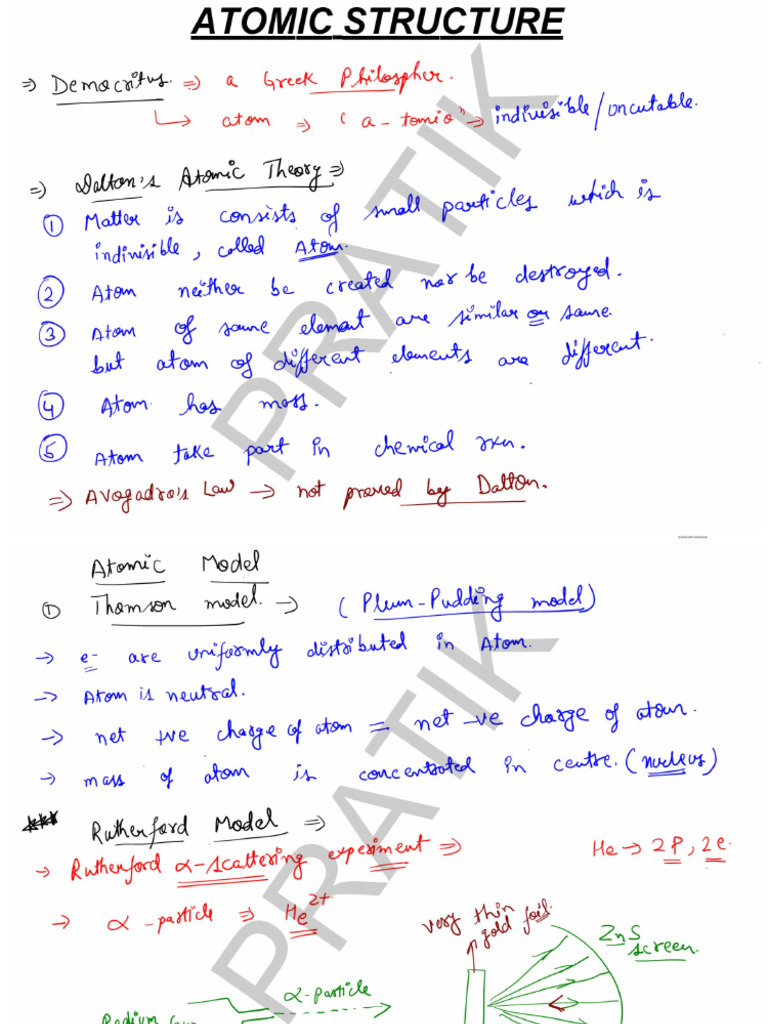 ATOMIC STRUCTURE
⇒ Democritus ⇒ a Greek Philospher.
↳ atom ⇒ ( a-tomio" → indivisible/uncutable.
⇒ Dalton's Atomic Theory ⇒
① Matter is consists of small particles which is
indivisible, called Atom.
② Atom neither be created nor be destroyed.
③ Atom of same element are similar or same.
but atom of different elements are different.
④ Atom has mass.
⑤ Atom take part in chemical rxn.
⇒ Avogadro's Law → not proved by Dalton.
Atomic Model
① Thomson model. → (Plum-Pudding model)
→ e- are uniformly distributed in Atom.
→ Atom is neutral.
→ net +ve charge of atom = net -ve charge of atom.
→ mass of atom is concentrated in centre. (nucleus)
*** Rutherford Model ⇒
→ Rutherford α-scattering experiment ⇒
He → 2P, 2e.
→ α-particle ⇒ He2+.
very thin
gold foil.
ZnS
screen.
α-particle
PRATIK
PRATIK